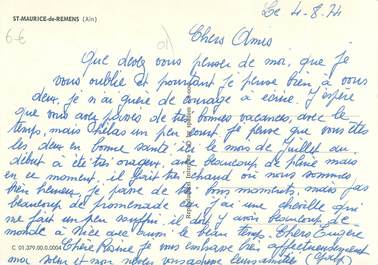 ST-MAURICE-de-REMENS (Ain)
Le 4-8.74
6€
Chers Amis
Que devez vous penser de moi, que je
vous oublie et pourtant je pense bien à vous
deux, je n'ai guère de courage à écrire. J'espère
que vous avez passés de très bonnes vacances, avec le
temps, mais hélas un peu court. Je pense que vous êtes
les deux en bonne santé, ici le mois de Juillet au
début à été très orageux, avec beaucoup de pluie mais
en ce moment, il fait très chaud où nous sommes
très heureux, je passe de très bons moments, mais pas
beaucoup de promenade car j'ai une cheville qui
me fait un peu souffrir, il doit y avoir beaucoup de
monde à Nice avec aussi le beau temps. Chers Eugène
C 01.379.00.0.0004
Chère Rosine Je vous embrasse très affectueusement
ma sœur et mon neveu